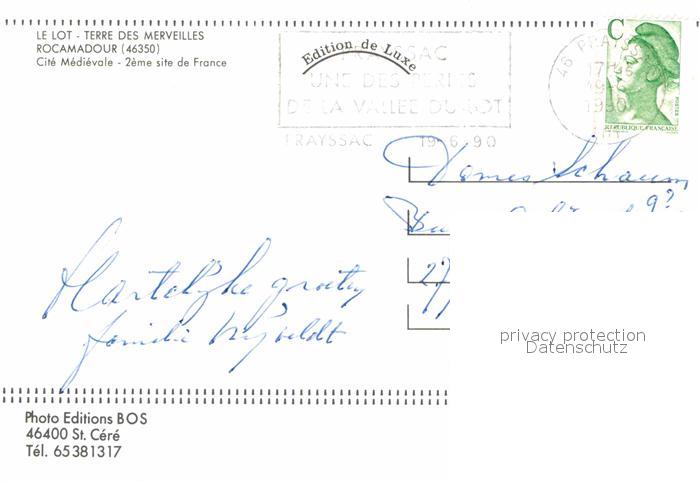 LE LOT - TERRE DES MERVEILLES
ROCAMADOUR (46350)
Cité Médiévale - 2ème site de France
Edition de Luxe
PRAYSSAC
UNE DES PERLES
DE LA VALLEE DU LOT
PRAYSSAC 19-6-90
46 PRAYSSAC
17H
19-6
1990
LOT
C
POSTES
REPUBLIQUE FRANÇAISE
Hartelijke groeten
familie
privacy protection
Datenschutz
Photo Editions BOS
46400 St. Céré
Tél. 65381317